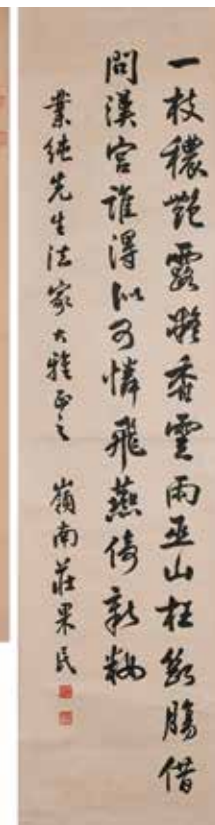 一枝穠艷露凝香雲雨巫山枉斷腸借
問漢宮誰得似可憐飛燕倚新粧
業純先生法家大雅正之 嶺南莊果民